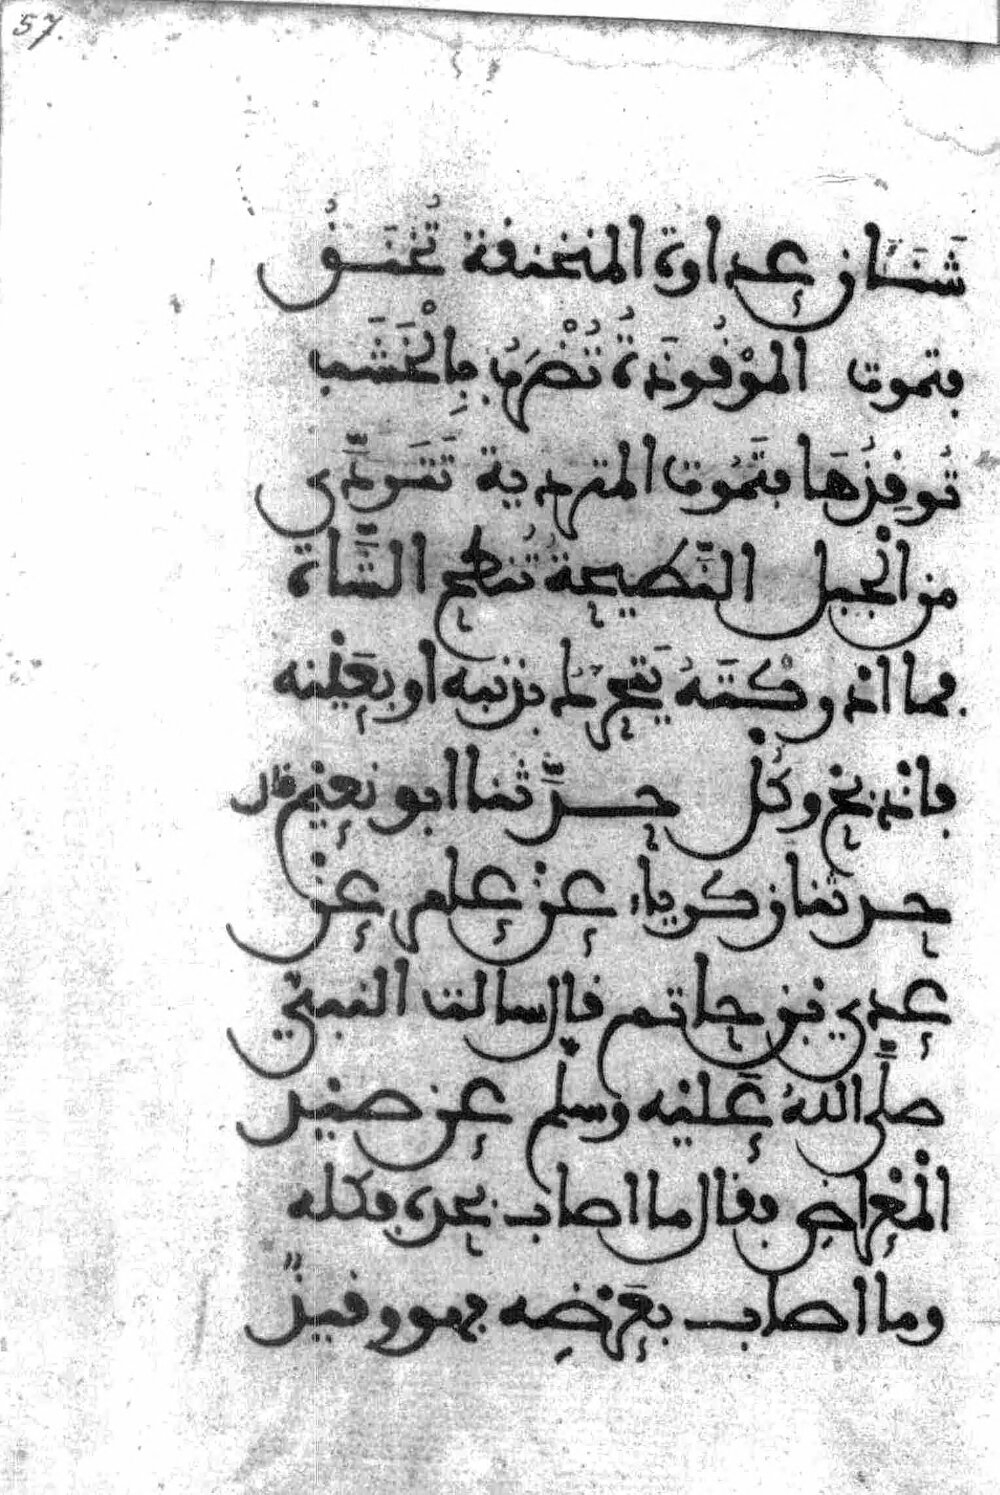 57.
شَنَئَانُ عداوة المنخنقة تُخْنَقُ
فتموت الموْقُوذَةُ تُضْرَبُ بِالْخَشَب
تُوقِذُهَا فتَمُوت المتردية تَتَرَدَّى
من الْجبل النَّطيحة تُنطح الشَّاة
فما ادركْتَهُ يَتَحرك بذنبه او بعَيْنه
فاذبح وكُل حدَّثنا ابو نعيْم قال
حدثنا زكرياء عنْ عامر عنْ
عدي بن حاتم قال سالت النبيّ
صلَّى اللهُ عَليْه وسلم عن صيْد
الْمعْرَاضِ فقال ما اصاب بحده فكله
وما اصاب بعَرْضِه فهو وقيذٌ